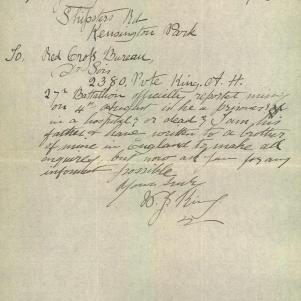 Shipsters Rd
Kensington Park
To Red Cross Bureau,
Dr Sirs
2380, Pvte King, A. H.
27th Battalion officially reported missing
on 4th August is he a prisoner or
in a hospital or dead I am his
father & have written to a brother
of mine in England to make all
enquiry, but now ask you for any
informant possible
Yours truly
W. J. King